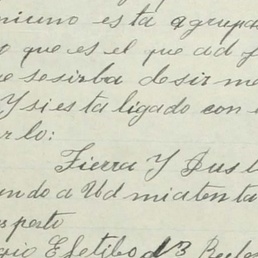 niuno esta agrupa
o que es el que ad
e se sirba desir me
Y si esta ligado con
rlo:
Tierra Y Justi
ndo a Ud mi atenta
respeto
Efetibo